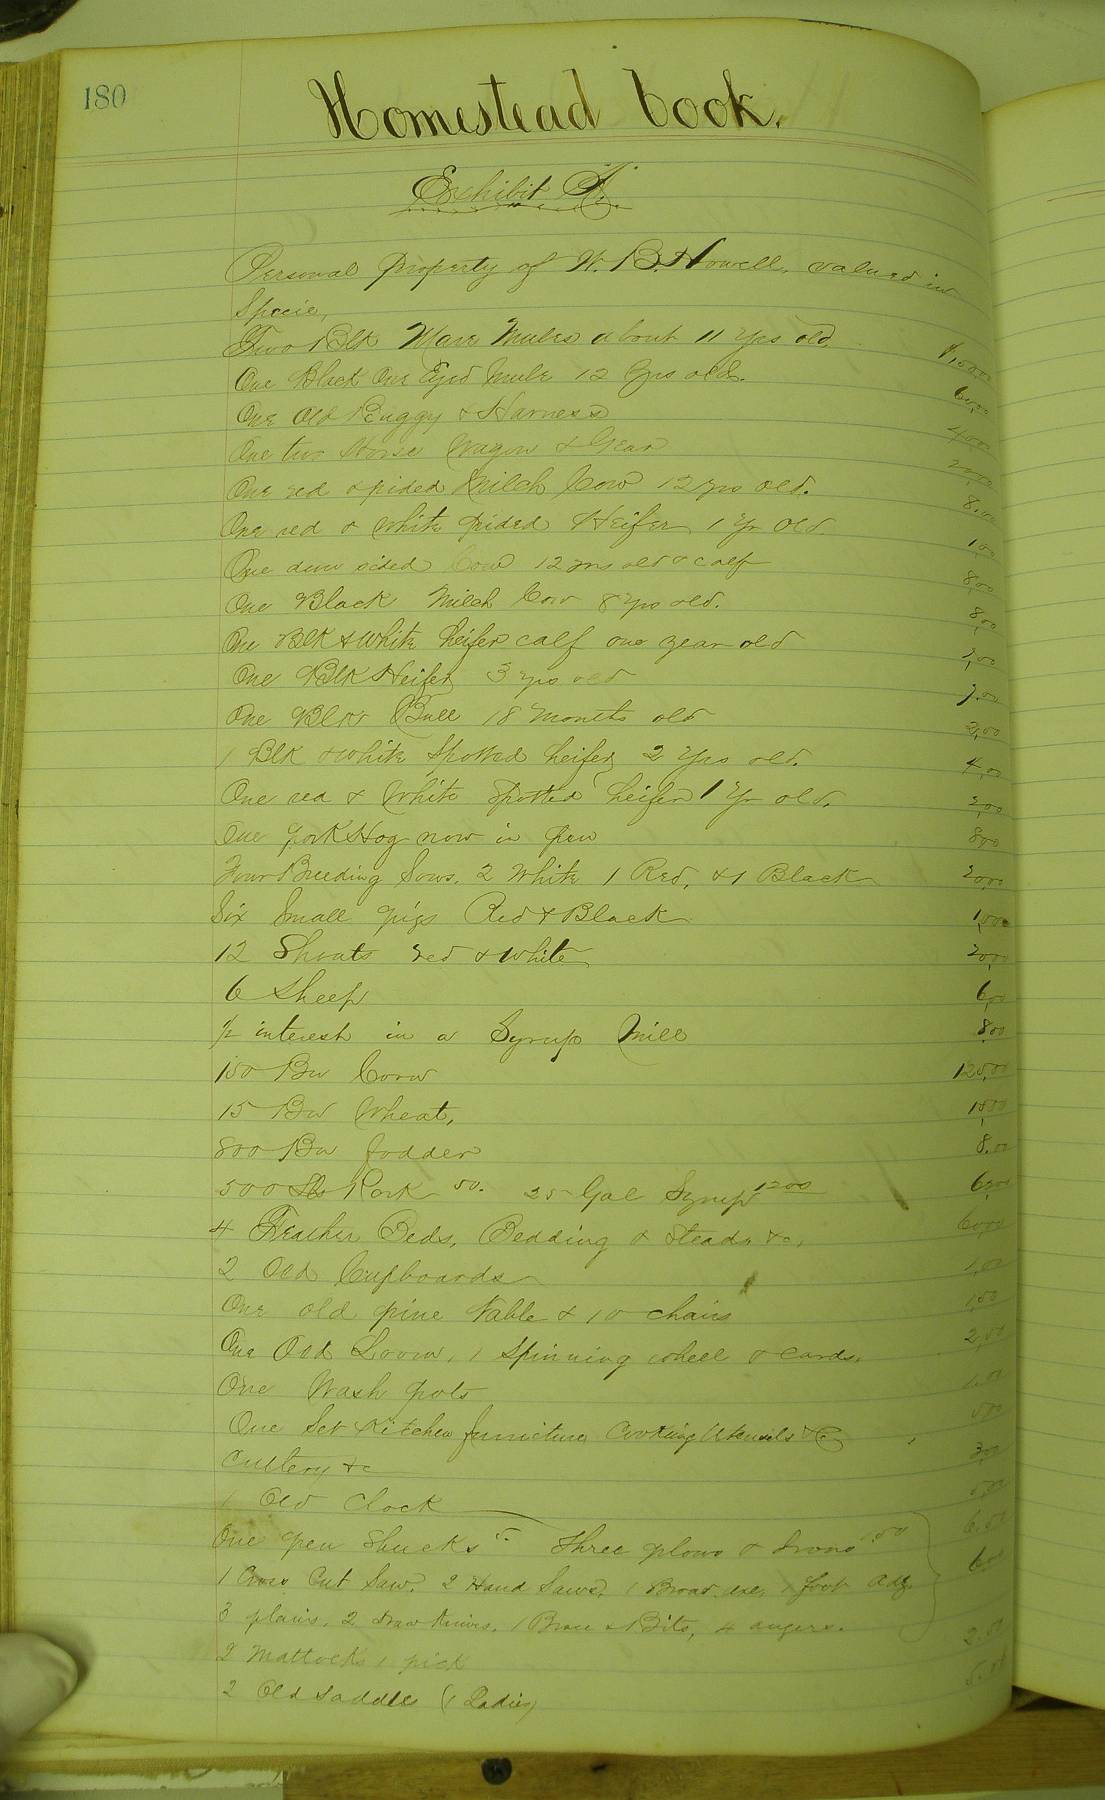 180
Homestead book.
Exhibit A.
Personal Property of W. B. Howell, valued in
Specie,
Two Blk Mare Mules about 11 yrs old. $150,00
One Black One Eyed Mule 12 Yrs old. 60,00
One Old Buggy & Harness 40,00
One two Horse Wagon & Gear 20,00
One red & pided Milch Cow 12 yrs old. 8.00
One red & white pided Heifer 1 Yr Old.
One dun sided Cow 12 yrs old & calf 8,00
One Black Milch Cow 8 Yrs old. 8,00
One Blk & White heifer calf one year old
One Blk Heifer 3 yrs old 7.00
One Blk Bull 18 Months old
1 Blk & White Spotted heifer 2 Yrs old. 4,00
One red & White Spotted heifer 1 Yr old. 2,00
One pork Hog now in pen 800
Four Breeding Sows. 2 White 1 Red, & 1 Black 20,00
Six Small pigs Red & Black
12 Shoats red & White 20,00
6 Sheep 6,00
½ interest in a Syrup Mill 8,00
150 Bu Corn 125,00
15 Bu Wheat, 15,00
800 Bu fodder 8.00
500 Lbs Pork 50. 25 Gal Syrup 1200
4 Feather Beds, Bedding & Steads &c, 60,00
2 Old Cupboards 1,00
One old pine Table & 10 chairs 1,50
One Old Loom, 1 Spinning wheel & cards. 2,50
One Wash pots 1.00
One Set Kitchen furniture Cooking Utensils &c
Cutlery &c
1 Old Clock
One pen Shucks Three plows & Irons
1 Cross Cut Saw. 2 Hand Saws, 1 Broad axe, 1 foot Adz.
3 plains. 2 draw knives. 1 Brace & Bits, 4 augers.
2 Mattocks 1 pick 2.50
2 Old saddles (1 Ladies) 5.00